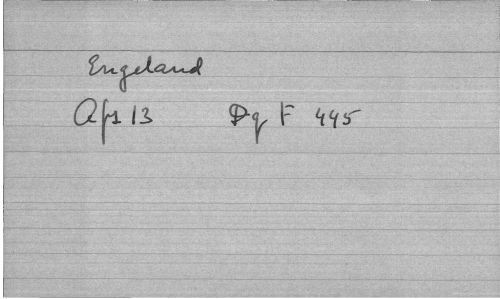 Engeland
Afs 13 Dq F 445